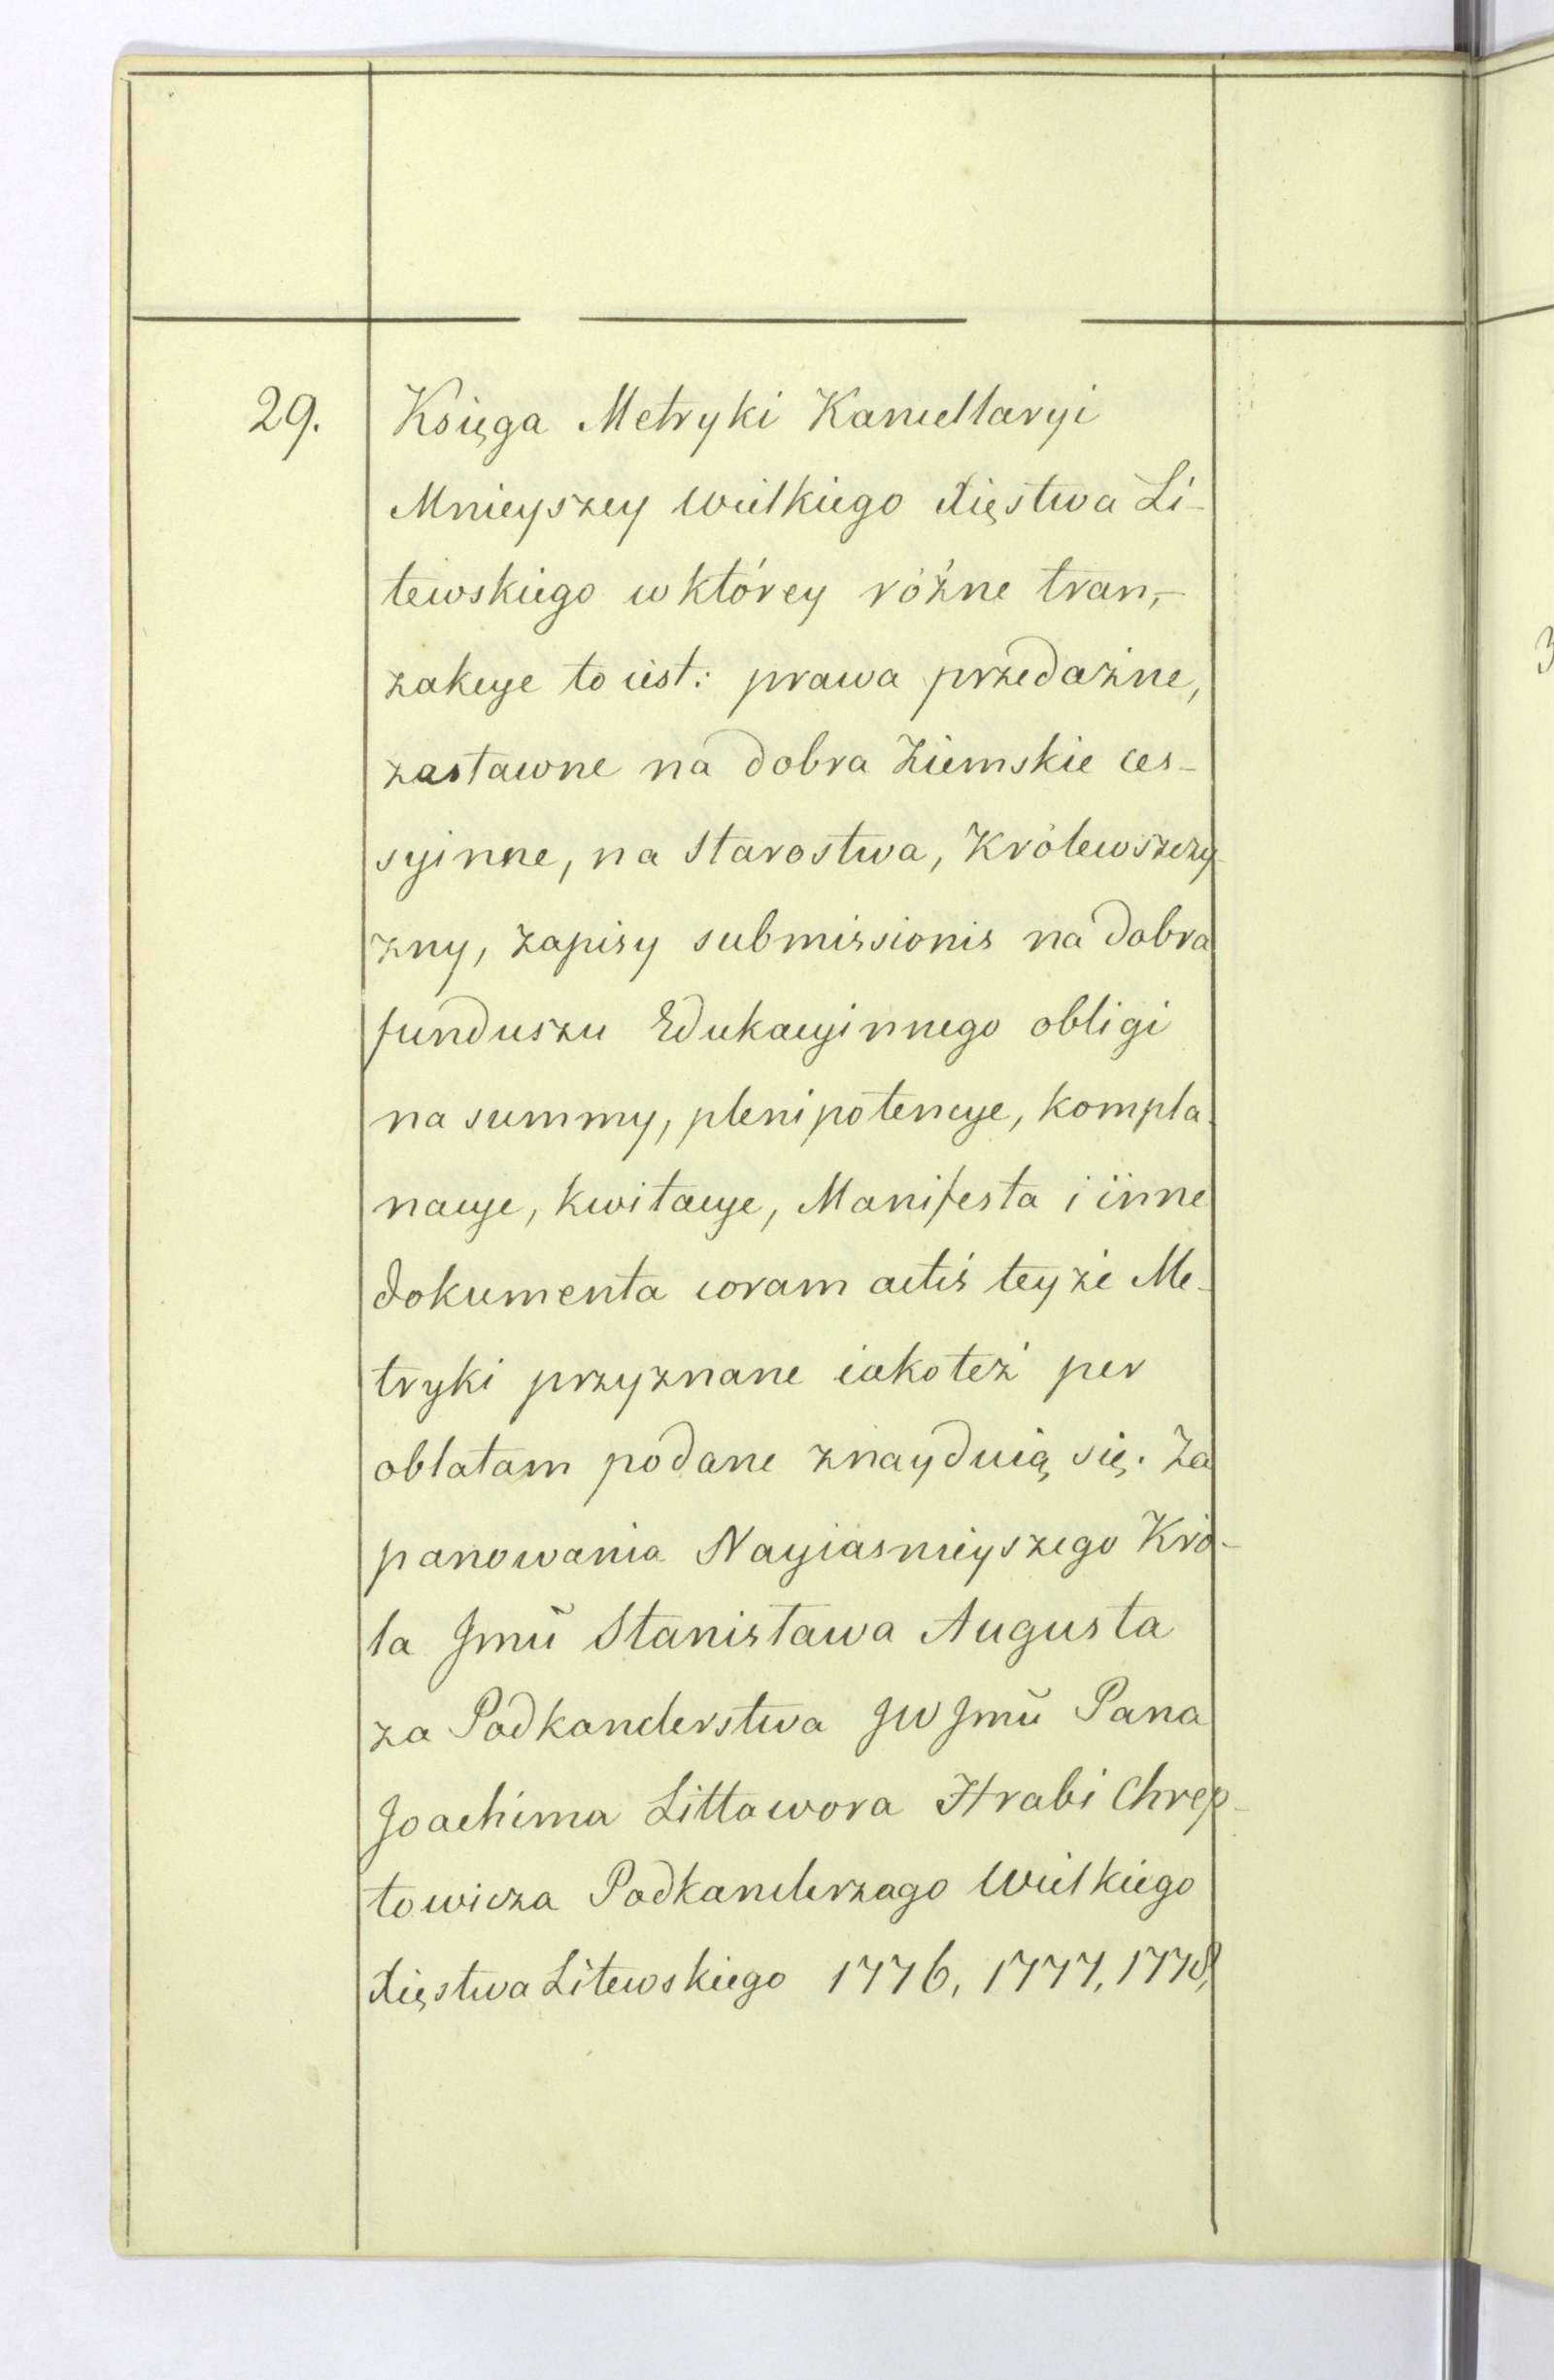 29. Księga Metryki Kancellaryi
Mnieyszey Wielkiego Xięstwa Li-
tewskiego w którey różne tran,-
zakcye to iest: prawa przedażne,
zastawne na dobra Ziemskie ces-
syinne, na Starostwa, Królewszczy-
zny, zapisy submissionis na dobra
funduszu Edukacyinnego obligi
na summy, plenipotencye, kompla-
nacye, kwitacye, Manifesta i inne
dokumenta coram actis teyże Me-
tryki przyznane iakoteż per
oblatam podane znayduią się. Za
panowania Nayiasnieyszego Kró-
la Jmū Stanisława Augusta
za Podkanclerstwa JW Jmū Pana
Joachima Littawora Hrabi Chrep-
towicza Podkanclerzago Wielkiego
Xięstwa Litewskiego 1776, 1777, 1778,